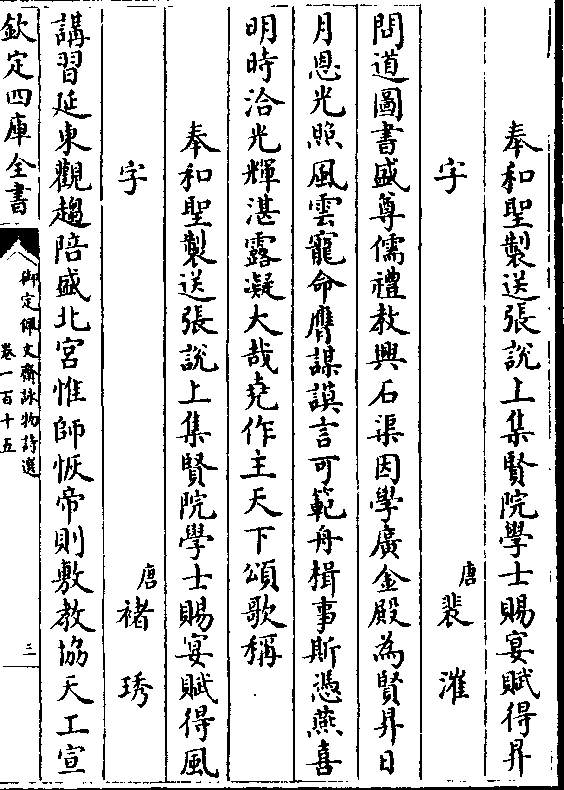 奉和聖製送張說上集賢院學士賜宴賦得昇
字　唐　裴漼
問道圖書盛尊儒禮教興石渠因學廣金殿為賢昇日
月恩光照風雲寵命膺謀謨言可範舟楫事斯憑燕喜
明時洽光輝湛露凝大哉堯作主天下頌歌稱
奉和聖製送張說上集賢院學士賜宴賦得風
字　唐　褚琇
講習延東觀趨陪盛北宮惟師恢帝則敷教協天工宣
欽定四庫全書
御定佩文齋詠物詩選
卷一百十五
三